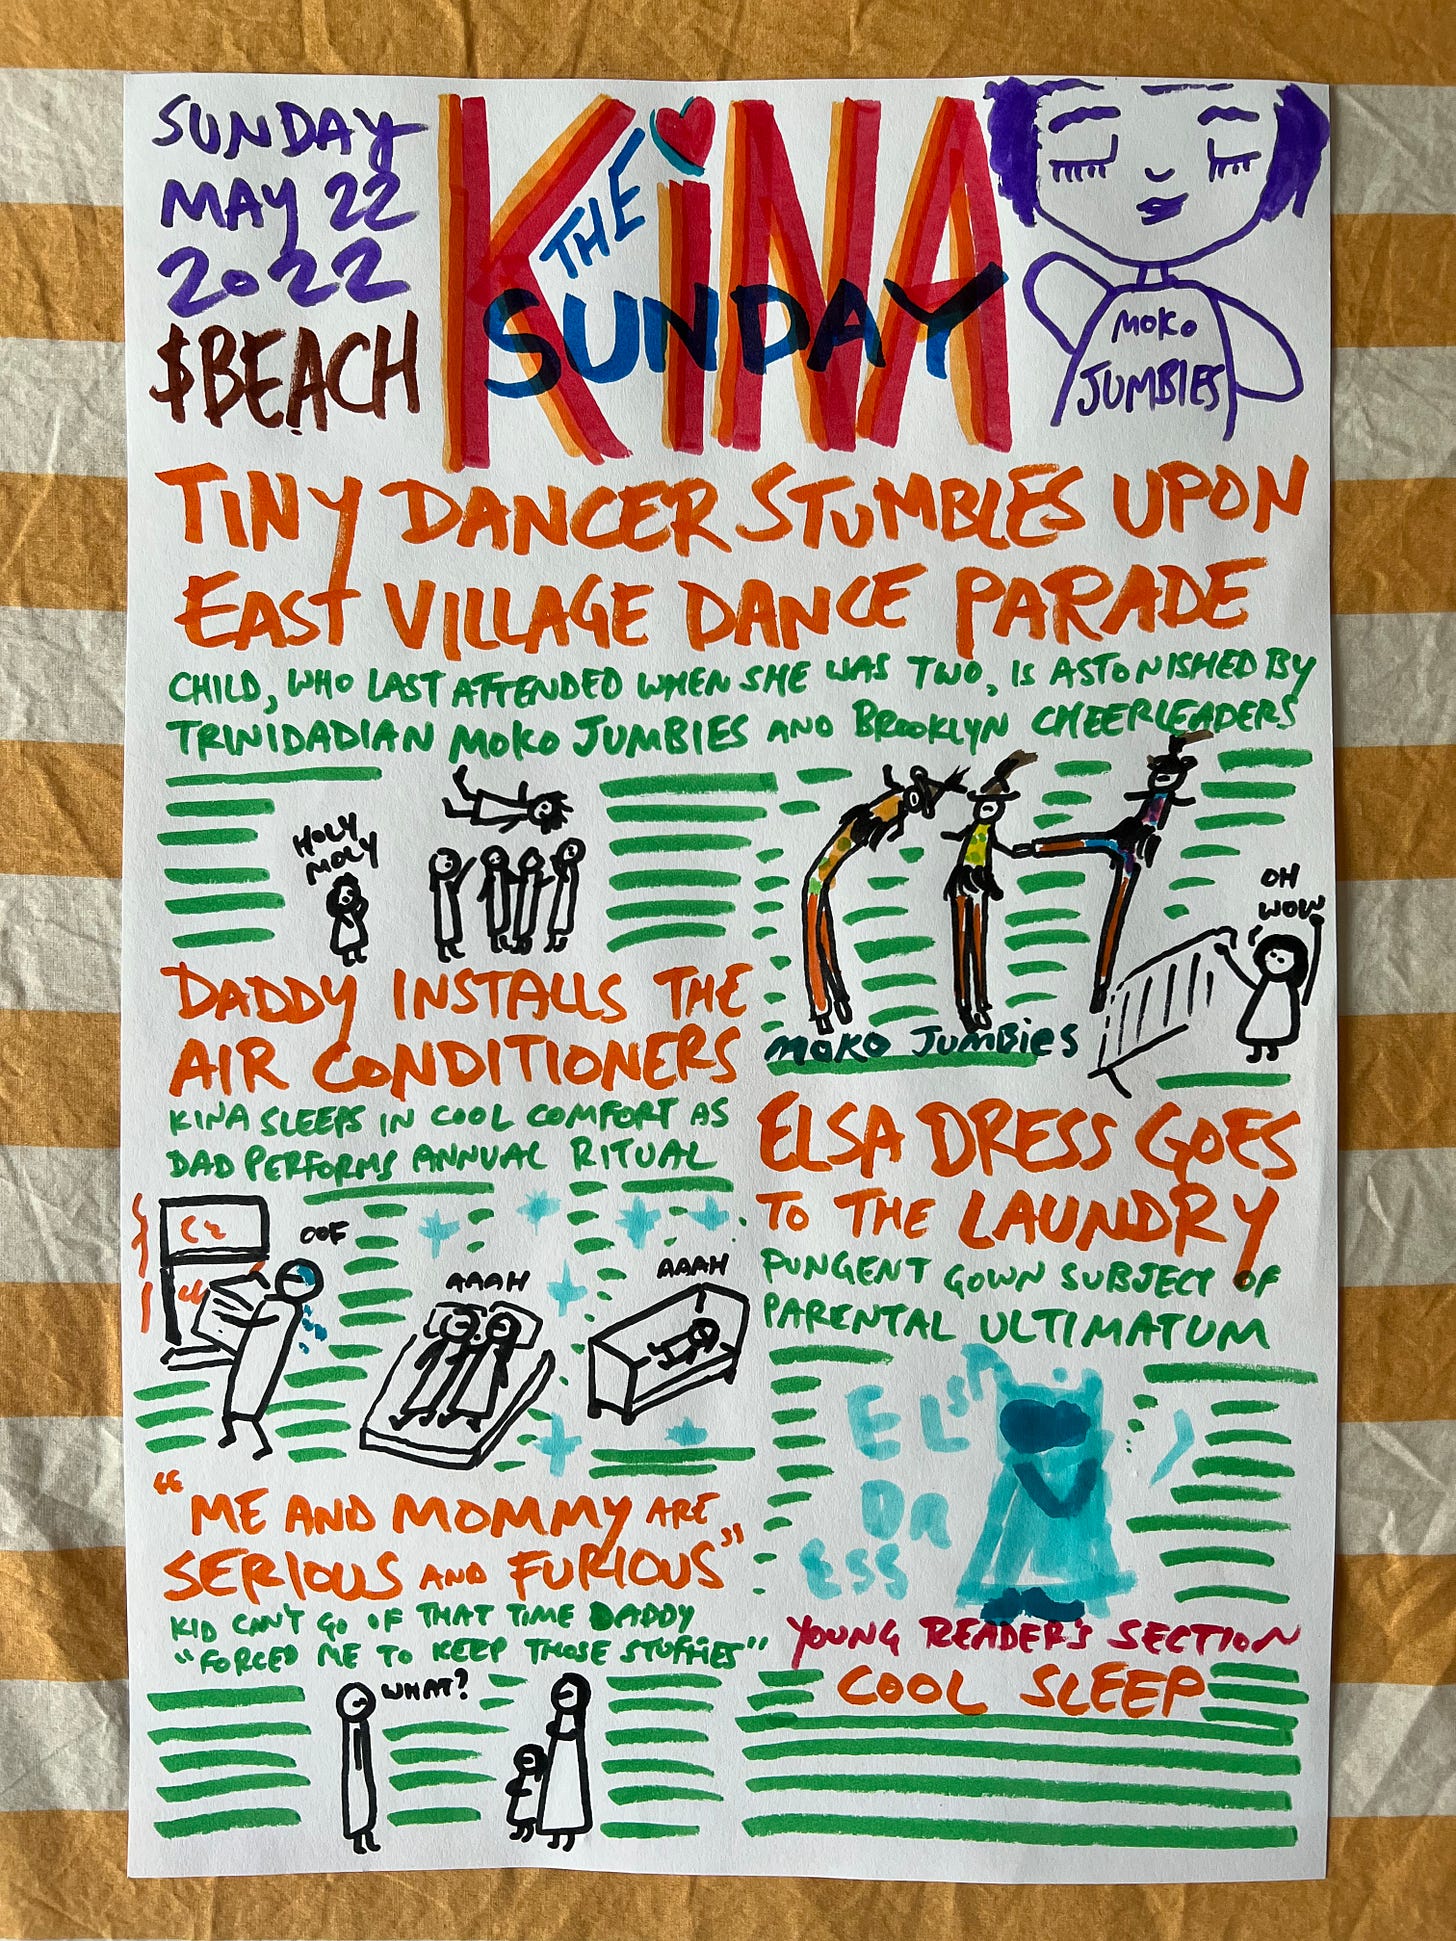 SUNDAY
MAY 22
2022
$BEACH
THE
KiNA
SUNDAY
MOKO
JUMBIES
TINY DANCER STUMBLES UPON
EAST VILLAGE DANCE PARADE
CHILD, WHO LAST ATTENDED WHEN SHE WAS TWO, IS ASTONISHED BY
TRINIDADIAN MOKO JUMBIES AND BROOKLYN CHEERLEADERS
HOLY
MOLY
OH
WOW
MOKO JUMBIES
DADDY INSTALLS THE
AIR CONDITIONERS
KINA SLEEPS IN COOL COMFORT AS
DAD PERFORMS ANNUAL RITUAL
OOF
AAAH
AAAH
ELSA DRESS GOES
TO THE LAUNDRY
PUNGENT GOWN SUBJECT OF
PARENTAL ULTIMATUM
ELSA
DR
ESS
"ME AND MOMMY ARE
SERIOUS AND FURIOUS"
KID CAN'T GO OF THAT TIME DADDY
"FORCED ME TO KEEP THOSE STUFFIES"
WHAT?
YOUNG READER'S SECTION
COOL SLEEP